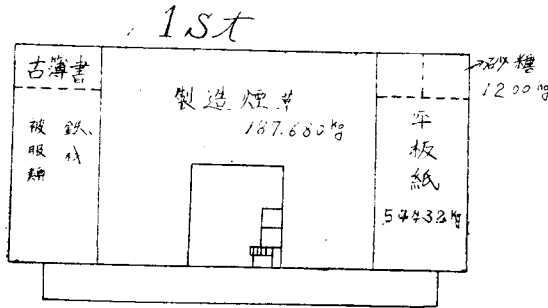 1st
古簿書
被服類
鉄、材
製造煙草
187.680kg
平板紙
54432kg
砂糖
1200kg